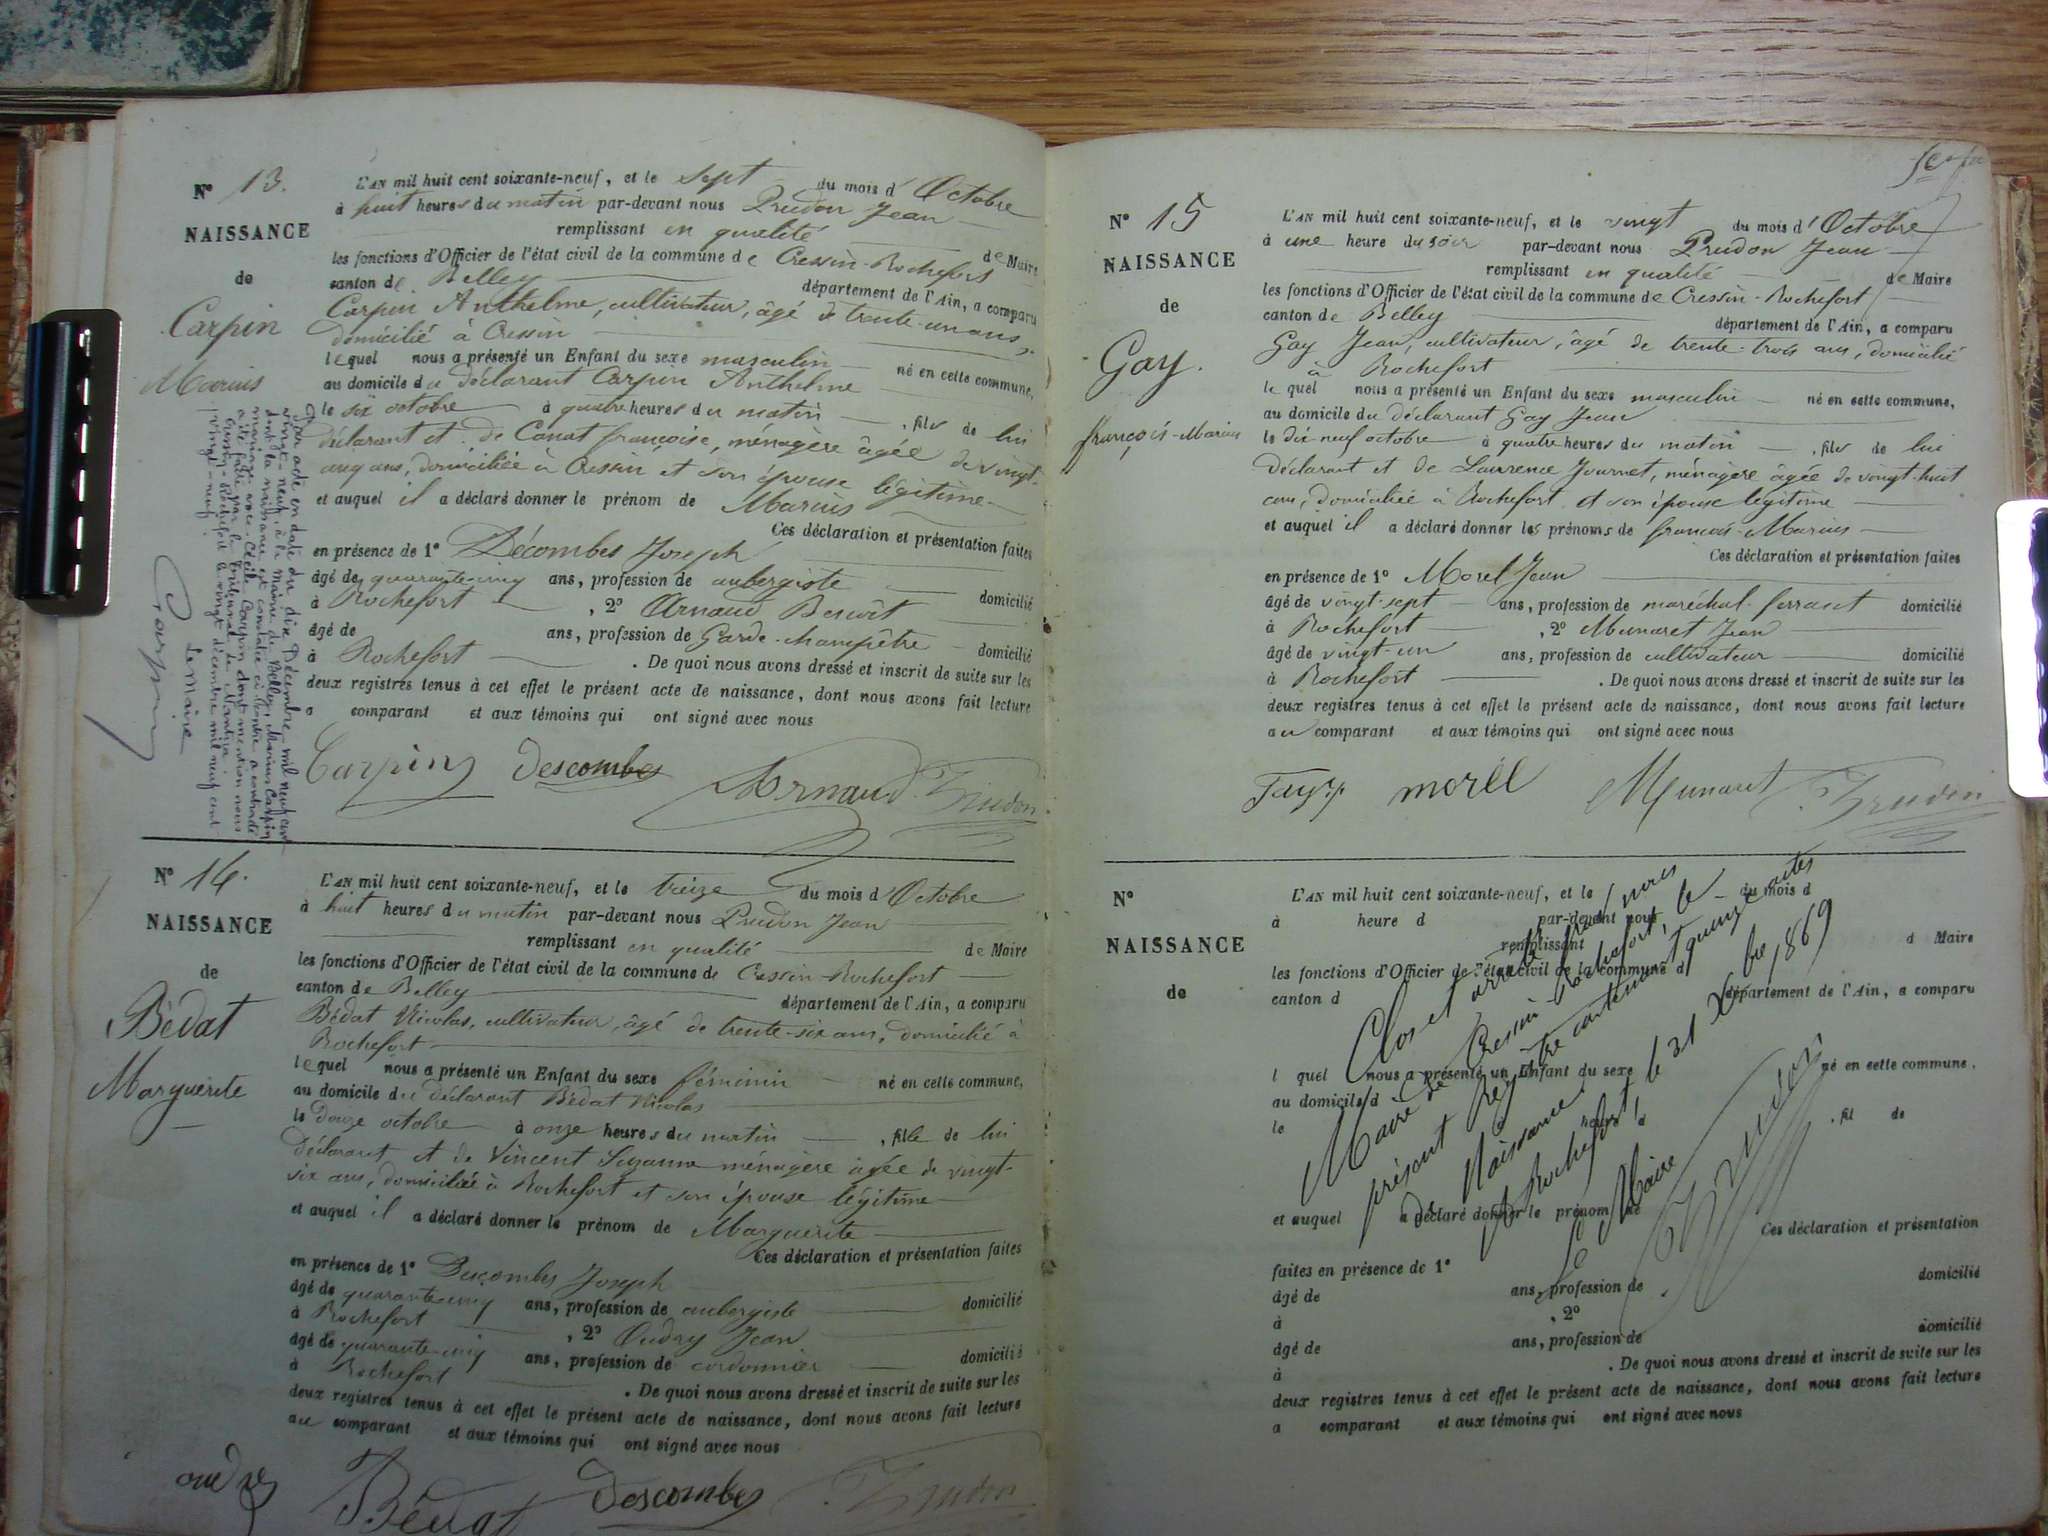 N° 13.
NAISSANCE
de
Carpin
Marius
L'AN mil huit cent soixante-neuf, et le sept du mois d'Octobre
à huit heures du matin par-devant nous Prudon Jean
remplissant en qualité de Maire
les fonctions d'Officier de l'état civil de la commune de Cressin-Rochefort
canton de Belley département de l'Ain, a comparu
Carpin Anthelme, cultivateur, âgé de trente-un ans,
domicilié à Cressin
lequel nous a présenté un Enfant du sexe masculin né en cette commune,
au domicile du déclarant Carpin Anthelme
le six octobre à quatre heures du matin, fils de lui
déclarant et de Canat françoise, ménagère âgée de vingt-
cinq ans, domiciliée à Cressin et son épouse légitime
et auquel il a déclaré donner le prénom de Marius
Ces déclaration et présentation faites
en présence de 1° Décombes Joseph
âgé de quarante-cinq ans, profession de aubergiste domicilié
à Rochefort, 2° Arnaud Benoît
âgé de ans, profession de Garde-champêtre domicilié
à Rochefort. De quoi nous avons dressé et inscrit de suite sur les
deux registres tenus à cet effet le présent acte de naissance, dont nous avons fait lecture
a comparant et aux témoins qui ont signé avec nous
Carpin Descombes Arnaud Prudon
Par acte en date du dix Décembre mil neuf cent
vingt-neuf, à la mairie de Belley, Marius Carpin
dont la naissance est constatée ci-contre a contracté
mariage avec Cécile Carpin dont mention nous
a été faite par le tribunal de Nantua
Cressin-Rochefort le vingt décembre mil neuf cent
vingt-neuf
Le Maire
Carpin
N° 14.
NAISSANCE
de
Bédat
Marguerite
L'AN mil huit cent soixante-neuf, et le treize du mois d'Octobre
à huit heures du matin par-devant nous Prudon Jean
remplissant en qualité de Maire
les fonctions d'Officier de l'état civil de la commune de Cressin-Rochefort
canton de Belley département de l'Ain, a comparu
Bédat Nicolas, cultivateur, âgé de trente-six ans, domicilié à
Rochefort
lequel nous a présenté un Enfant du sexe féminin né en cette commune,
au domicile du déclarant Bédat Nicolas
le douze octobre à onze heures du matin, fille de lui
déclarant et de Vincent Suzanne ménagère âgée de vingt-
six ans, domiciliée à Rochefort et son épouse légitime
et auquel il a déclaré donner le prénom de Marguerite
Ces déclaration et présentation faites
en présence de 1° Descombes Joseph
âgé de quarante-cinq ans, profession de aubergiste domicilié
à Rochefort, 2° Oudry Jean
âgé de quarante-cinq ans, profession de cordonnier domicilié
à Rochefort. De quoi nous avons dressé et inscrit de suite sur les
deux registres tenus à cet effet le présent acte de naissance, dont nous avons fait lecture
au comparant et aux témoins qui ont signé avec nous
Bédat Descombes Prudon
N° 15
NAISSANCE
de
Gay.
françois-Marius
L'AN mil huit cent soixante-neuf, et le vingt du mois d'Octobre
à une heure du soir par-devant nous Prudon Jean
remplissant en qualité de Maire
les fonctions d'Officier de l'état civil de la commune de Cressin-Rochefort
canton de Belley département de l'Ain, a comparu
Gay Jean, cultivateur, âgé de trente-trois ans, domicilié
à Rochefort
lequel nous a présenté un Enfant du sexe masculin né en cette commune,
au domicile du déclarant Gay Jean
le dix-neuf octobre à quatre heures du matin, fils de lui
déclarant et de Laurence Journet, ménagère âgée de vingt-huit
ans, domiciliée à Rochefort et son épouse légitime
et auquel il a déclaré donner les prénoms de françois-Marius
Ces déclaration et présentation faites
en présence de 1° Morel Jean
âgé de vingt-sept ans, profession de maréchal-ferrant domicilié
à Rochefort, 2° Munaret Jean
âgé de vingt-un ans, profession de cultivateur domicilié
à Rochefort. De quoi nous avons dressé et inscrit de suite sur les
deux registres tenus à cet effet le présent acte de naissance, dont nous avons fait lecture
au comparant et aux témoins qui ont signé avec nous
morel Munaret Prudon
N°
NAISSANCE
de
L'AN mil huit cent soixante-neuf, et le du mois d
à heure d par-devant nous
remplissant d Maire
les fonctions d'Officier de l'état civil de la commune d
canton d département de l'Ain, a comparu
l quel nous a présenté un Enfant du sexe né en cette commune,
au domicile d
le heure d , fil de
et auquel a déclaré donner le prénom de
Ces déclaration et présentation
faites en présence de 1°
âgé de ans, profession de domicilié
à , 2°
âgé de ans, profession de domicilié
à . De quoi nous avons dressé et inscrit de suite sur les
deux registres tenus à cet effet le présent acte de naissance, dont nous avons fait lecture
a comparant et aux témoins qui ont signé avec nous
Clos et arrêté par nous
Maire de Cressin-Rochefort, le
présent Registre contenant quinze actes
de Naissance.
à Rochefort, le 31 Xbre 1869
Le Maire
Prudon